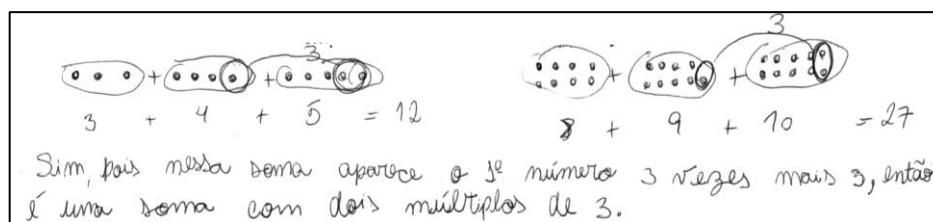 3 3
3 + 4 + 5 = 12 8 + 9 + 10 = 27
Sim, pois nessa soma aparece o 1º número 3 vezes mais 3, então
é uma soma com dois múltiplos de 3.